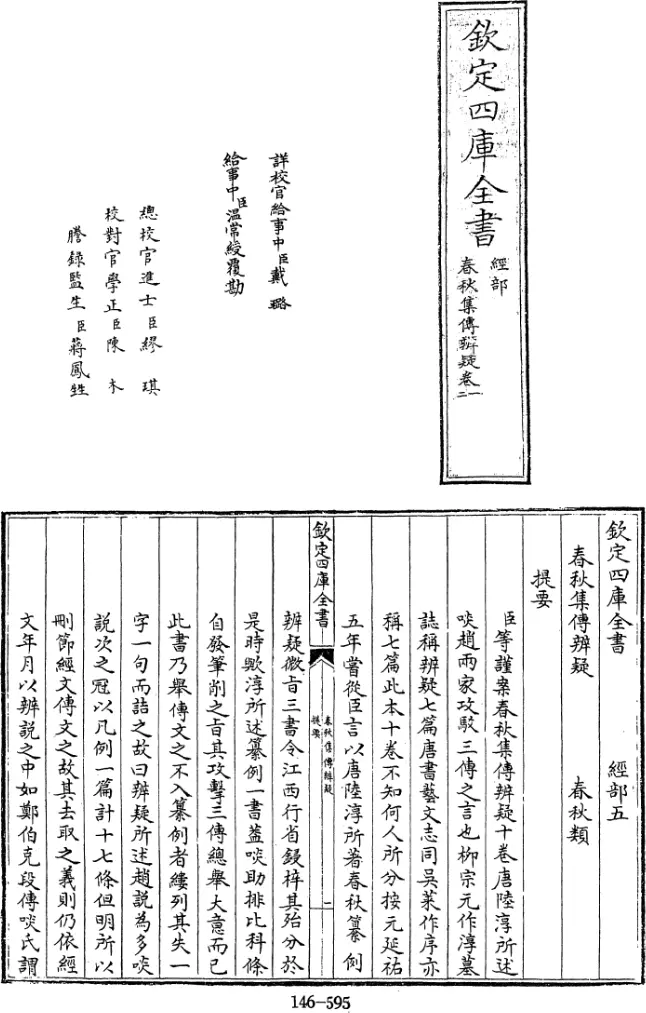 欽定四庫全書
經部
春秋集傳辨疑卷一二
詳校官給事中臣戴璐
給事中臣溫常綬覆勘
總校官進士臣繆琪
校對官學正臣陳木
謄錄監生臣蔣鳳甡
欽定四庫全書 經部五
春秋集傳辨疑 春秋類
提要
臣等謹案春秋集傳辨疑十卷唐陸淳所述
啖趙兩家攻駁三傳之言也栁宗元作淳墓
誌稱辨疑七篇唐書藝文志同吳萊作序亦
稱七篇此本十卷不知何人所分按元延祐
五年嘗從臣言以唐陸淳所著春秋纂例
欽定四庫全書
春秋集傳辨疑
提要
一
辨疑微旨三書令江西行省鋟梓其殆分於
是時歟淳所述纂例一書蓋啖助排比科條
自發筆削之旨其攻擊三傳總舉大意而已
此書乃舉傳文之不入纂例者縷列其失一
字一句而詰之故曰辨疑所述趙說為多啖
說次之冠以凡例一篇計十七條但明所以
刪節經文傳文之故其去取之義則仍依經
文年月以辨說之中如鄭伯克段傳啖氏謂
146-595